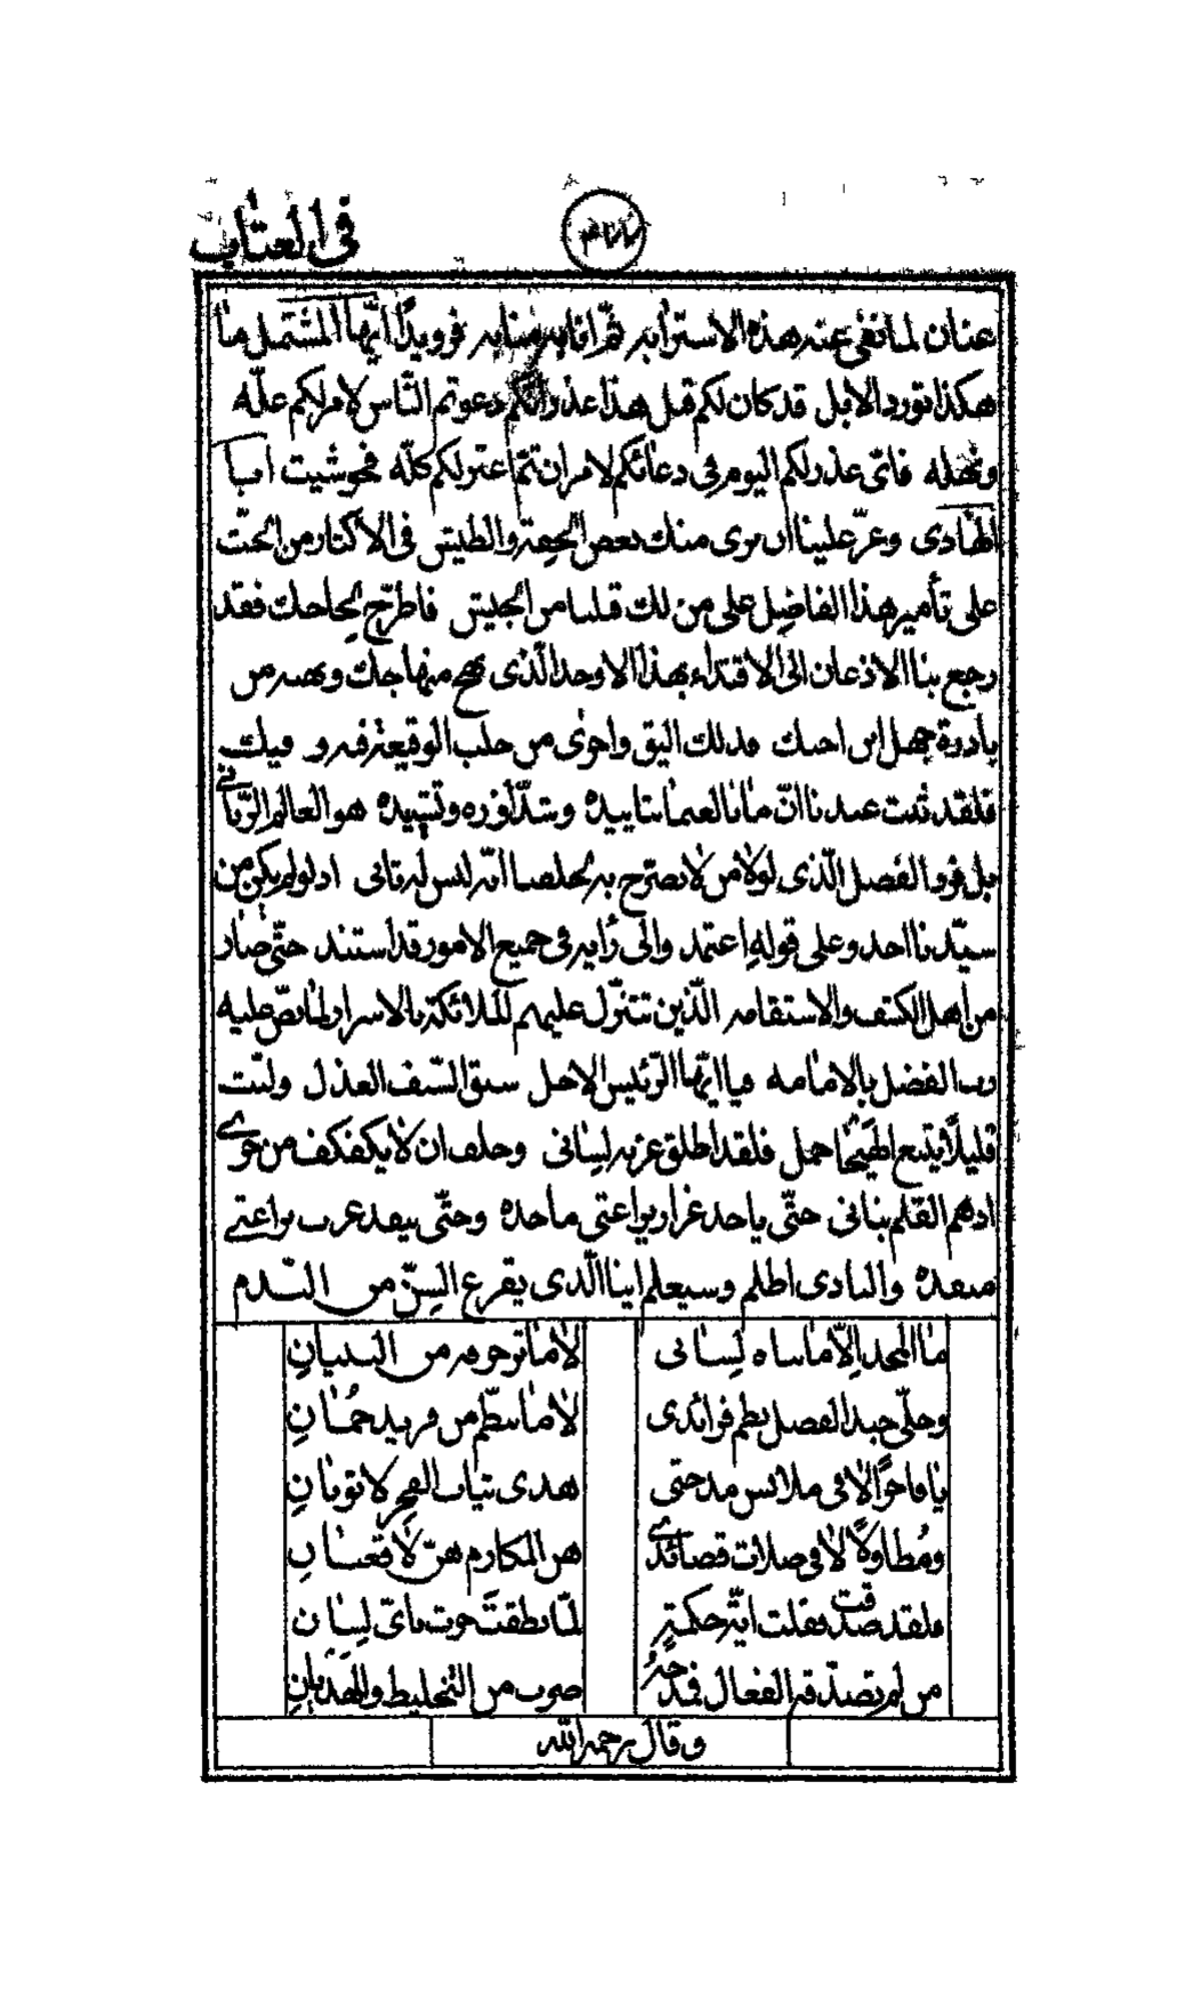 في العتاب
عنان لما نفى عنه هذه الاسترابه ثم انابه منابه فرويدًا ايّها المشتمل ما
هكذا تورد الابل قد كان لكم قبل هذا عذر انكم دعوتم النّاس لامر لكم علّه
ونهله فاىّ عذر لكم اليوم فى دعائكم لامران تمّ اعترلكم كلّه فحوشيت ابا
الهادى وعزّ علينا ان نرى منك بعض الخفة والطيش فى الاكثار من الحثّ
على تأمير هذا الفاضل على من لك قلبا من الجيش فاطرح لجاجك فقد
رجع بنا الاذعان الى الاقتداء بهذا الاوحد الّذى نهج منهاجك من
بادرة جهل ابن اخيك فذلك اليق واحرى من حلب الوقيعة فيه و فيك
فلقد ثبت عندنا انّ بابا العمى تاييده وشدّ ازره وتشييده هو العالم الرّبانّى
بل ذو الفضل الّذى لولا من لا نصرّح به انّه ليس له ثانى اذ لو لم يكن من
سيّدنا احد وعلى قوله اعتمد والى رأيه فى جميع الامور قد استند حتّى صار
من اهل الكشف والاستقامه الّذين تتنزّل عليهم الملائكة بالاسرار لما نصّ عليه
رب الفضل بالامامه فيا ايّها الرّئيس الاجل سبق السّيف العذل ولبّث
قليلًا يتبع الهيجا حمل فلقد اطلق عزبه لسانى وحلف ان لا يكفكف من
ادهم القلم بنانى حتّى ياخذ غرار يراعتى ماخذه وحتّى ينفذ غرب يراعتى
منفذه والبادى اظلم وسيعلم اينا الّذى يقرع السنّ من النّدم
ما المجد الّا ما بناه لسانى لا ما ترخرفه من البنيان
وحلّى جيد الفضل نظم فرائدى لا ما ينظّم من فريد جمان
يا فاخرًا لا فى ملابس مدحتى هذى ثياب الفخر لا ثوبان
ومطاولًا لا فى صلات قصائدى هن المكارم هنّ لا قعبان
فلقد صدقت فقلت ايّة حكمة لمّا نطقت حوت باىّ لسان
من لم تصدّقه الفعال فمدحه ضرب من التخليط والهذيان
و قال رحمه الله